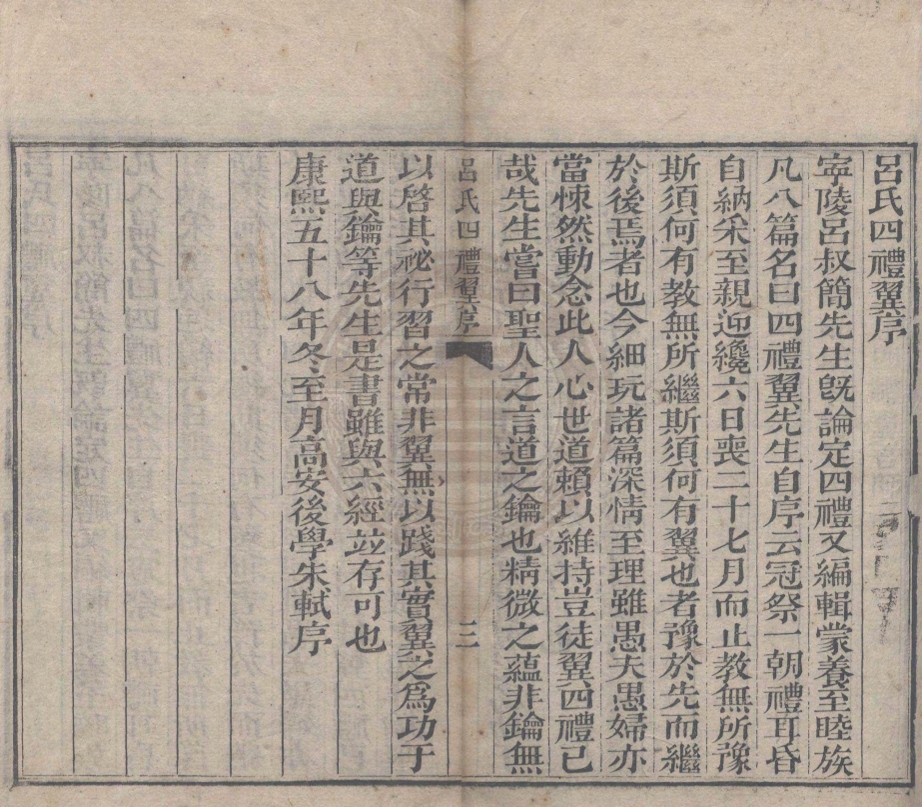 呂氏四禮翼序
寧陵呂叔簡先生旣論定四禮又編輯蒙養至睦族
凡八篇名曰四禮翼先生自序云冠祭一朝禮耳昏
自納采至親迎纔六日喪二十七月而止教無所豫
斯須何有教無所繼斯須何有翼也者豫於先而繼
於後焉者也今細玩諸篇深情至理雖愚夫愚婦亦
當悚然動念此人心世道賴以維持豈徒翼四禮已
哉先生嘗曰聖人之言道之鑰也精微之蘊非鑰無
呂氏四禮翼序 三
以啓其祕行習之常非翼無以踐其實翼之爲功于
道與鑰等先生是書雖與六經並存可也
康熙五十八年冬至月高安後學朱軾序